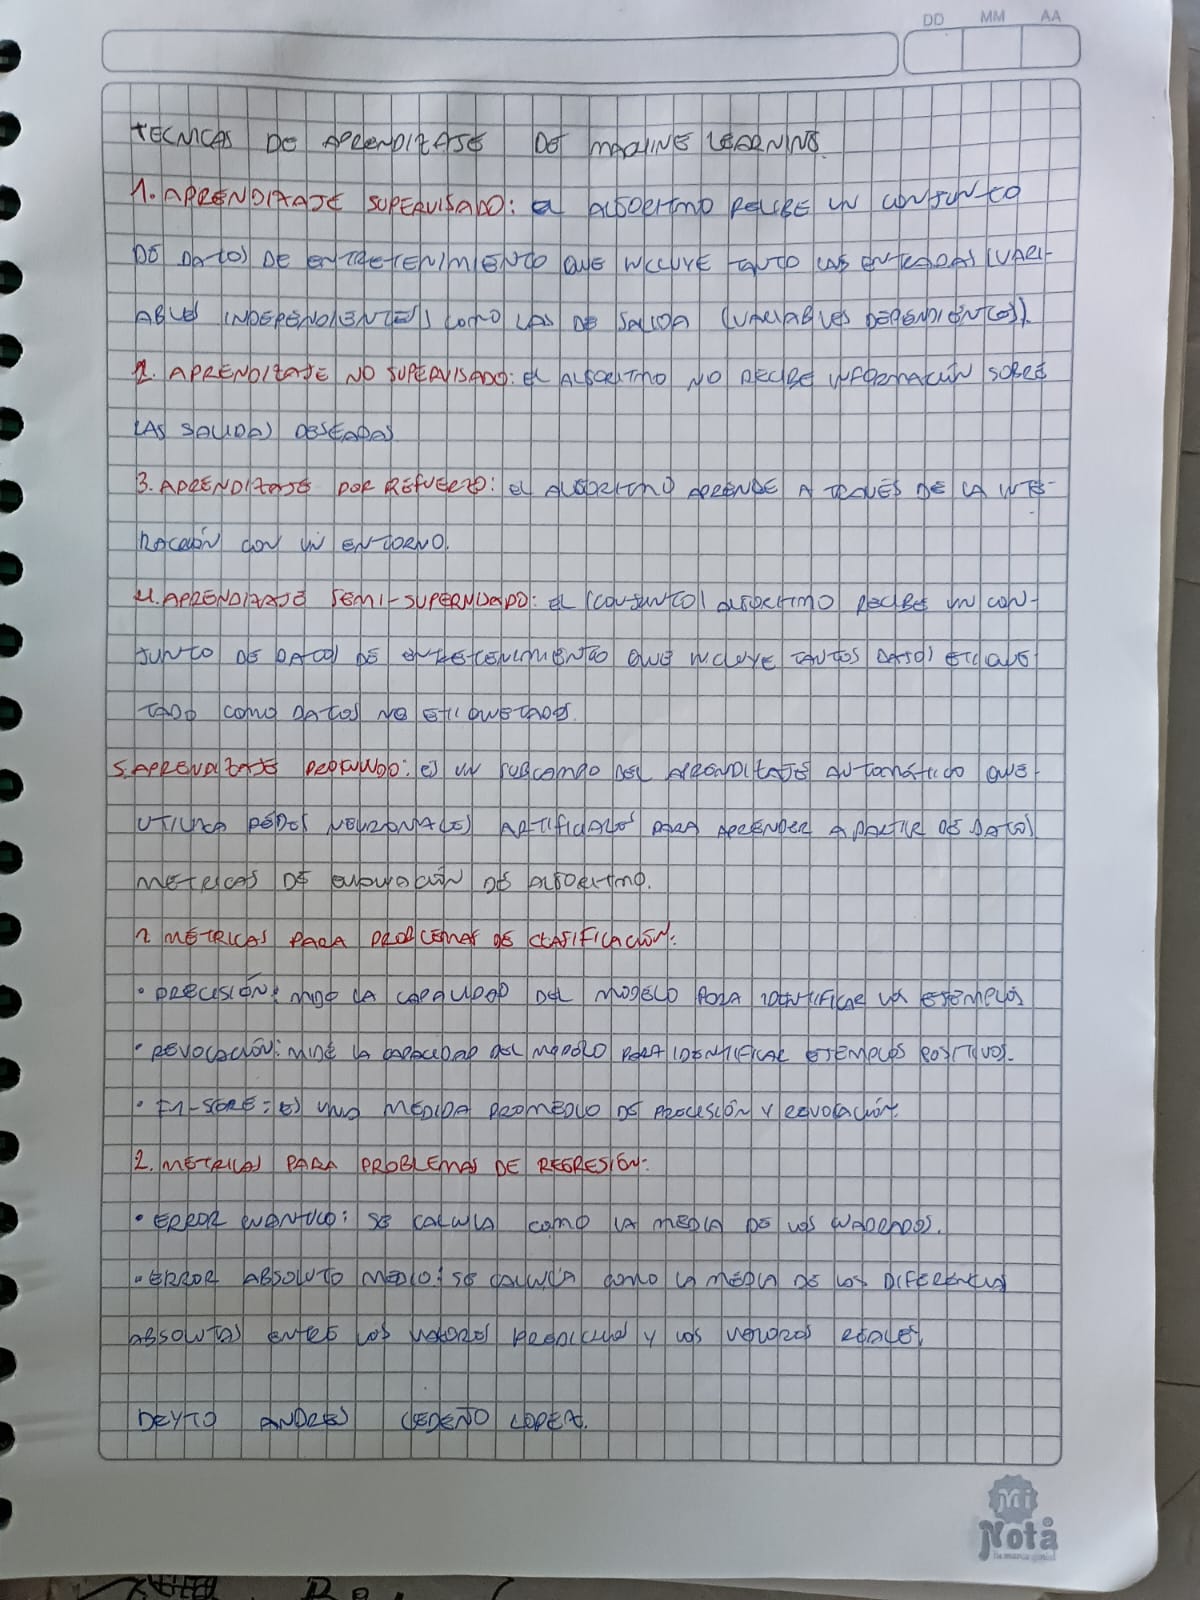 DD MM AA
TECNICAS DE APRENDIZAJE DE MACLINE LEARNING.
1. APRENDIZAJE SUPERVISADO: El ALGORITMO RECIBE UN CONJUNTO
DE DATOS DE ENTRETENIMIENTO QUE INCLUYE TANTO LAS ENTRADAS (VARI-
ABLES INDEPENDIENTES) COMO LAS DE SALIDA (VARIABLES DEPENDIENTES).
2. APRENDIZAJE NO SUPERVISADO: EL ALGORITMO NO RECIBE INFORMACIÓN SOBRE
LAS SALIDAS DESEADAS
3. APRENDIZAJE POR REFUERZO: EL ALGORITMO APRENDE A TRAVÉS DE LA INTE-
RACCIÓN CON UN ENTORNO.
4. APRENDIZAJE SEMI-SUPERVISADO: EL (CONJUNTO) ALGORITMO RECIBE UN CON-
JUNTO DE DATOS DE ENTRETENIMIENTO QUE INCLUYE TANTOS DATOS ETIQUE
TADO COMO DATOS NO ETIQUETADOS.
5. APRENDIZAJE PROFUNDO: ES UN SUBCAMPO DEL APRENDIZAJE AUTOMÁTICO QUE
UTILIZA REDES NEURONALES ARTIFICIALES PARA APRENDER A PARTIR DE DATOS
METRICAS DE EVALUACIÓN DE ALGORITMO.
1 METRICAS PARA PROBLEMAS DE CLASIFICACIÓN:
• PRECISIÓN: MIDE LA CAPACIDAD DEL MODELO PARA IDENTIFICAR LOS EJEMPLOS
• REVOCACIÓN: MIDE LA CAPACIDAD DEL MODELO PARA IDENTIFICAR EJEMPLOS POSITIVOS.
• F1-SCRE: ES UNA MEDIDA PROMEDIO DE PRECISIÓN Y REVOCACIÓN.
2. METRICAS PARA PROBLEMAS DE REGRESIÓN:
• ERROR SE CALCULA COMO LA MEDIA DE LOS CUADRADOS.
• ERROR ABSOLUTO MEDIO: SE CALCULA COMO LA MEDIA DE LOS DIFERENCIAS
ABSOLUTAS ENTRE LOS VALORES PREDICHOS Y LOS VALORES REALES.
DEYTO ANDRES CEDEÑO LOPEZ.
Mi
Nota